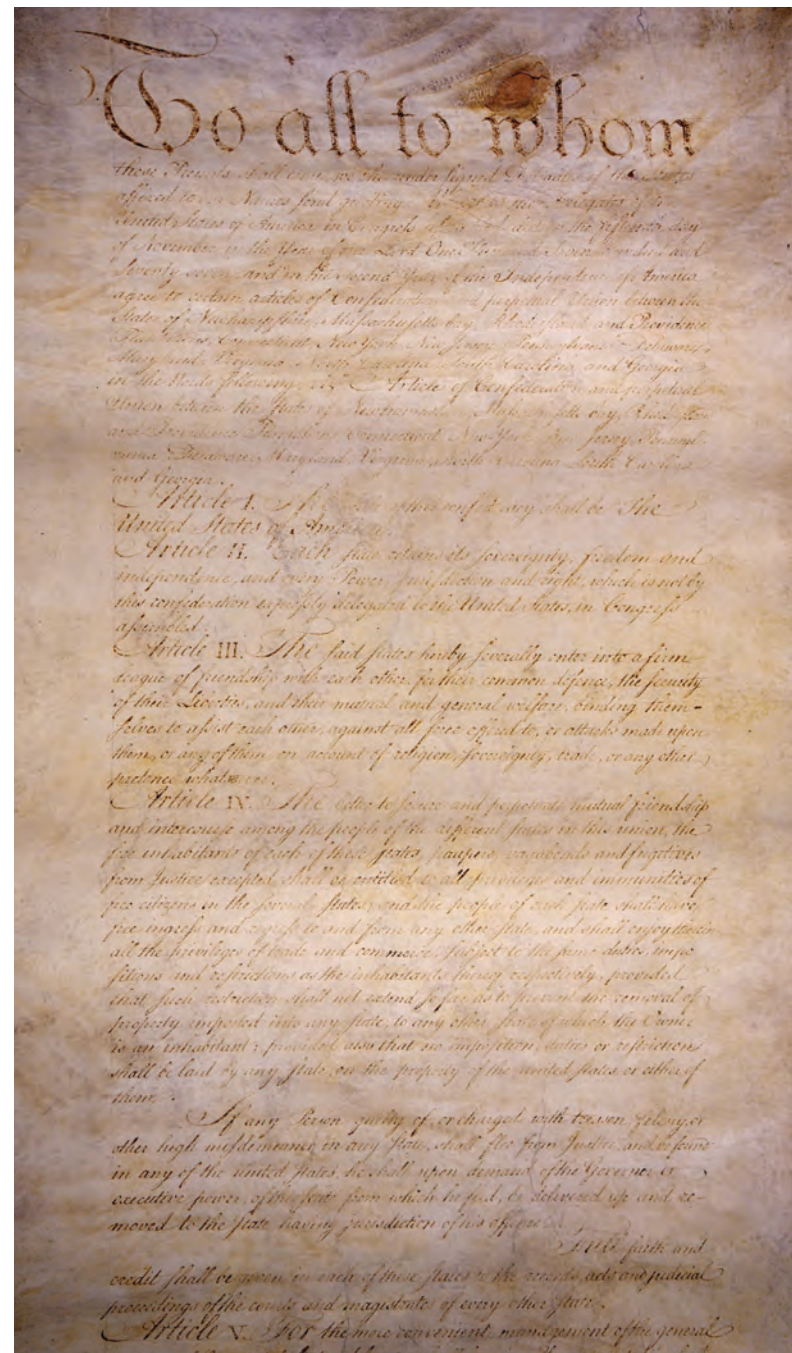 To all to whom
these Presents shall come, we the under signed Delegates of the States
affixed to our Names send greeting. Whereas the Delegates of the
United States of America in Congress assembled did on the fifteenth day
of November in the Year of our Lord One Thousand Seven Hundred and
Seventy seven, and in the Second Year of the Independence of America
agree to certain articles of Confederation and perpetual Union between the
States of Newhampshire, Massachusetts-bay, Rhodeisland and Providence
Plantations, Connecticut, New York, New Jersey, Pennsylvania, Delaware,
Maryland, Virginia, North-Carolina, South-Carolina, and Georgia
in the Words following, viz. Articles of Confederation and perpetual
Union between the States of Newhampshire, Massachusetts-bay, Rhodeisland
and Providence Plantations, Connecticut, New-York, New-Jersey, Pennsyl-
vania, Delaware, Maryland, Virginia, North-Carolina, South-Carolina
and Georgia.
Article I. The of this confederacy shall be "The
United States of America."
Article II. Each state retains its sovereignty, freedom and
independence, and every Power, Jurisdiction and right, which is not by
this confederation expressly delegated to the United States, in Congress
assembled.
Article III. The said states hereby severally enter into a firm
league of friendship with each other, for their common defence, the security
of their Liberties, and their mutual and general welfare, binding them-
selves to assist each other, against all force offered to, or attacks made upon
them, or any of them, on account of religion, sovereignty, trade, or any other
pretence whatever.
Article IV. The better to secure and perpetuate mutual friendship
and intercourse among the people of the different states in this union, the
free inhabitants of each of these states, paupers, vagabonds and fugitives
from Justice excepted, shall be entitled to all privileges and immunities of
free citizens in the several states; and the people of each state shall have
free ingress and regress to and from any other state, and shall enjoy therein
all the privileges of trade and commerce, subject to the same duties, impo
sitions and restrictions as the inhabitants thereof respectively, provided
that such restriction shall not extend so far as to prevent the removal of
property imported into any state, to any other state of which the Owner
is an inhabitant; provided also that no imposition, duties or restriction
shall be laid by any state, on the property of the united states, or either of
them.
If any Person guilty of, or charged with treason, felony, or
other high misdemeanor in any state, shall flee from Justice, and be found
in any of the united states, he shall upon demand of the Governor or
executive power, of the state from which he fled, be delivered up and re-
moved to the state having jurisdiction of his offence.
Full faith and
credit shall be given in each of these states to the records, acts and judicial
proceedings of the courts and magistrates of every other state.
Article V. For the more convenient management of the general